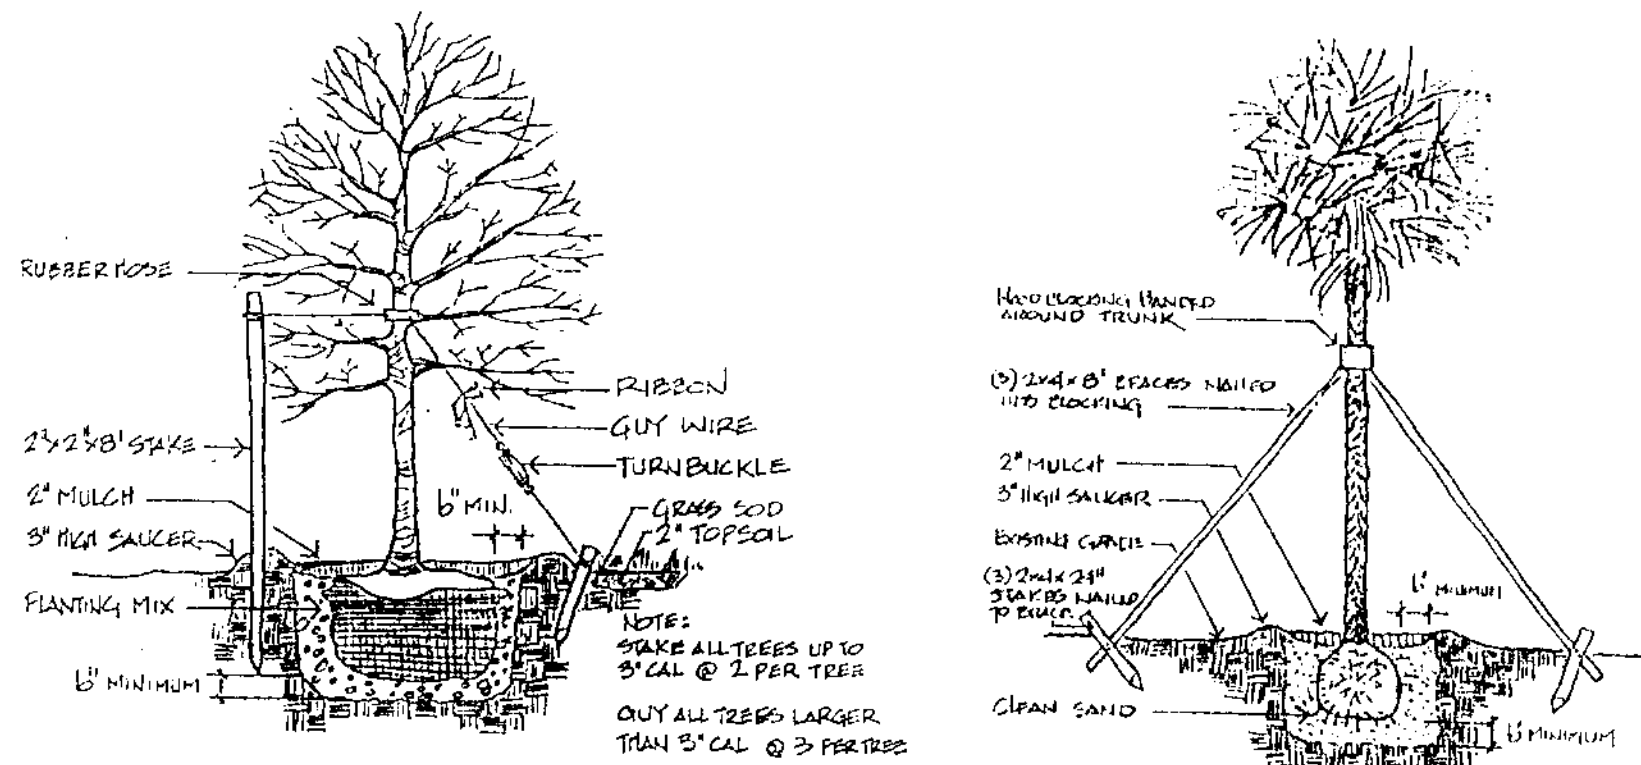 RUBBER HOSE
2"x2"x8' STAKE
2" MULCH
3" HIGH SAUCER
PLANTING MIX
6" MINIMUM
RIBBON
GUY WIRE
TURNBUCKLE
6" MIN.
GRASS SOD
2" TOPSOIL
NOTE:
STAKE ALL TREES UP TO
3" CAL @ 2 PER TREE
GUY ALL TREES LARGER
THAN 3" CAL @ 3 PER TREE
BANDED
AROUND TRUNK
(3) 2x4x8' BRACES NAILED
BLOCKING
2" MULCH
3" HIGH SAUCER
EXISTING GRADE
(3) 2x4x24"
STAKES NAILED
TO BRACE
6" MINIMUM
CLEAN SAND
6" MINIMUM